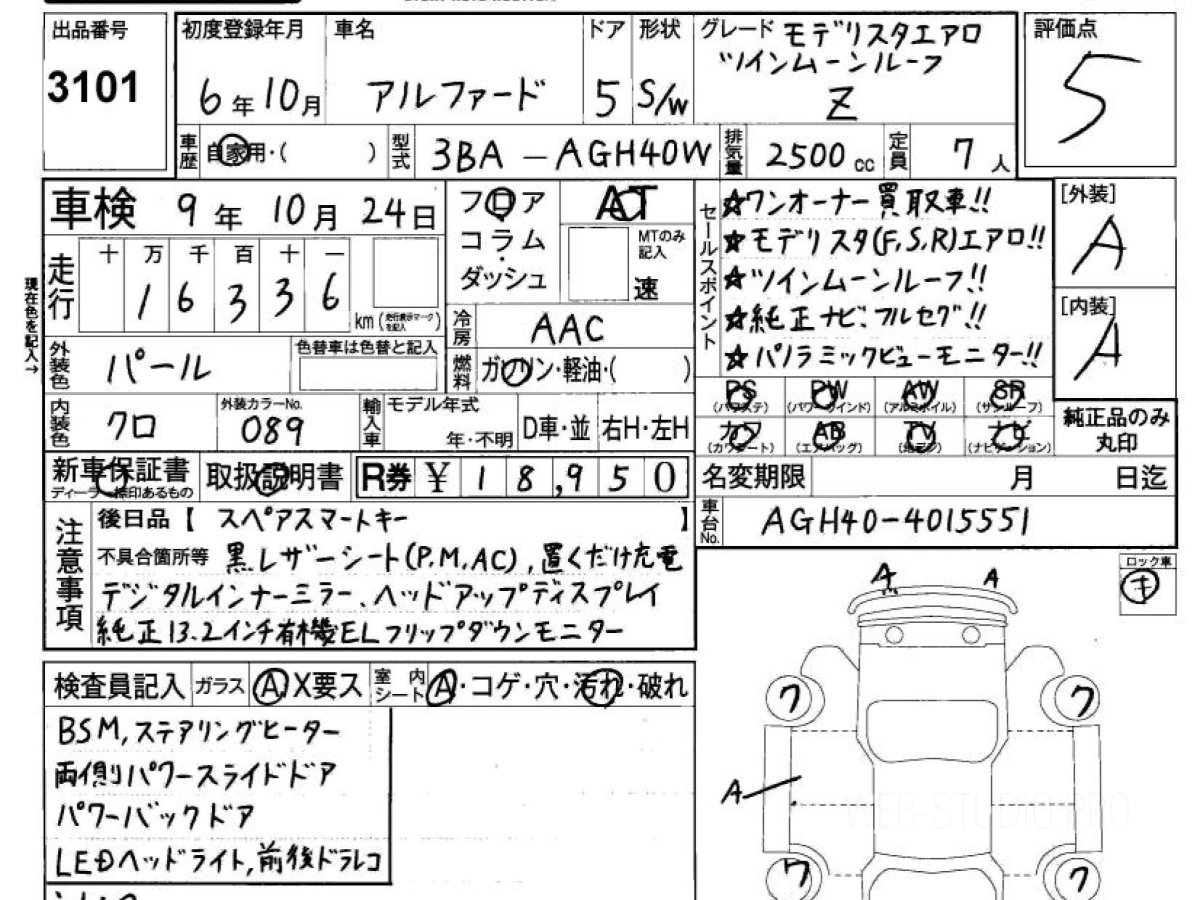 出品番号
3101
初度登録年月
6年10月
車名
アルファード
ドア
5
形状
S/W
グレード モデリスタエアロ
ツインムーンルーフ
Z
評価点
5
車歴 自家用・( )
型式 3BA-AGH40W
排気量 2500cc
定員 7人
車検 9年10月24日
フロア
コラム
ダッシュ
AT
MTのみ記入
速
セールスポイント
☆ワンオーナー買取車!!
☆モデリスタ(F,S,R)エアロ!!
☆ツインムーンルーフ!!
☆純正ナビ、フルセグ!!
☆パノラミックビューモニター!!
[外装]
A
[内装]
A
現在色を記入→
走行
十 万 千 百 十 一
1 6 3 3 6
km (走行表示マークを記入)
冷房 AAC
燃料 ガソリン・軽油・( )
外装色 パール
色替車は色替と記入
内装色 クロ
外装カラーNo.
089
輸入車
モデル年式
年・不明
D車・並
右H・左H
PS (パワステ)
PW (パワーウインド)
AW (アルミホイル)
SR (サンルーフ)
カワ (カワシート)
AB (エアバッグ)
TV (地デジ)
ナビ (ナビゲーション)
純正品のみ
丸印
新車保証書
ディーラー捺印あるもの
取扱説明書
R券 ¥18,950
名変期限 月 日迄
車台No. AGH40-4015551
注意事項
後日品【 スペアスマートキー 】
不具合箇所等 黒レザーシート(P.M,AC),置くだけ充電
デジタルインナーミラー、ヘッドアップディスプレイ
純正13.2インチ有機ELフリップダウンモニター
ロック車
キ
検査員記入
ガラス A X要ス
室内シート A・コゲ・穴・汚れ・破れ
BSM,ステアリングヒーター
両側パワースライドドア
パワーバックドア
LEDヘッドライト,前後ドラレコ
A A
ワ ワ
A
ワ ワ
WEB-STUDIO.PRO